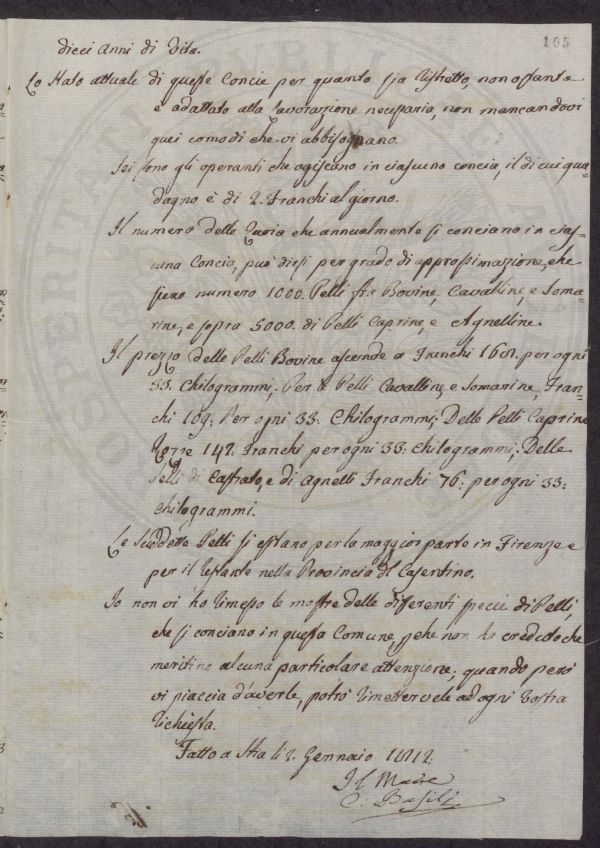 105
dieci anni di vita.
Lo Stato attuale di queste Concie per quanto sia ristretto, non ostante
è adattato alla lavorazione necessaria, non mancandovi
quei comodi che vi abbisognano.
Sei sono gli operanti che agiscano in ciascuna concia, il di cui gua-
dagno è di 2. Franchi al giorno.
Il numero delle Cuoia che annualmente si conciano in cias-
cuna Concia, può dirsi per grado di approssimazione, che
sieno numero 1000. Pelli fra Bovine, Cavalline, e Soma-
rine, e sopra 5000. di Pelli Caprine, e Agnelline.
Il prezzo delle Pelli Bovine ascende a Franchi 168. per ogni
33. Chilogrammi; Per le Pelli Cavalline, e Somarine, Fran-
chi 109. Per ogni 33: Chilogrammi; Delle Pelli Caprine
142. Franchi per ogni 33: Chilogrammi; Delle
Pelli di Castrato, e di agnelli Franchi 76: per ogni 33:
Chilogrammi.
Le suddette Pelli si esitano per la maggior parte in Firenze e
per il restante nella Provincia del Casentino.
Io non vi ho rimesso le mostre delle differenti specie di Pelli,
che si conciano in questa Comune, pchè non ho creduto che
meritino alcuna particolare attenzione; quando però
vi piaccia d'averle, potrò rimettervele ad ogni vostra
richiesta.
Fatto a Stia li 2. Gennaio 1812.
Il Maire
C: Basili